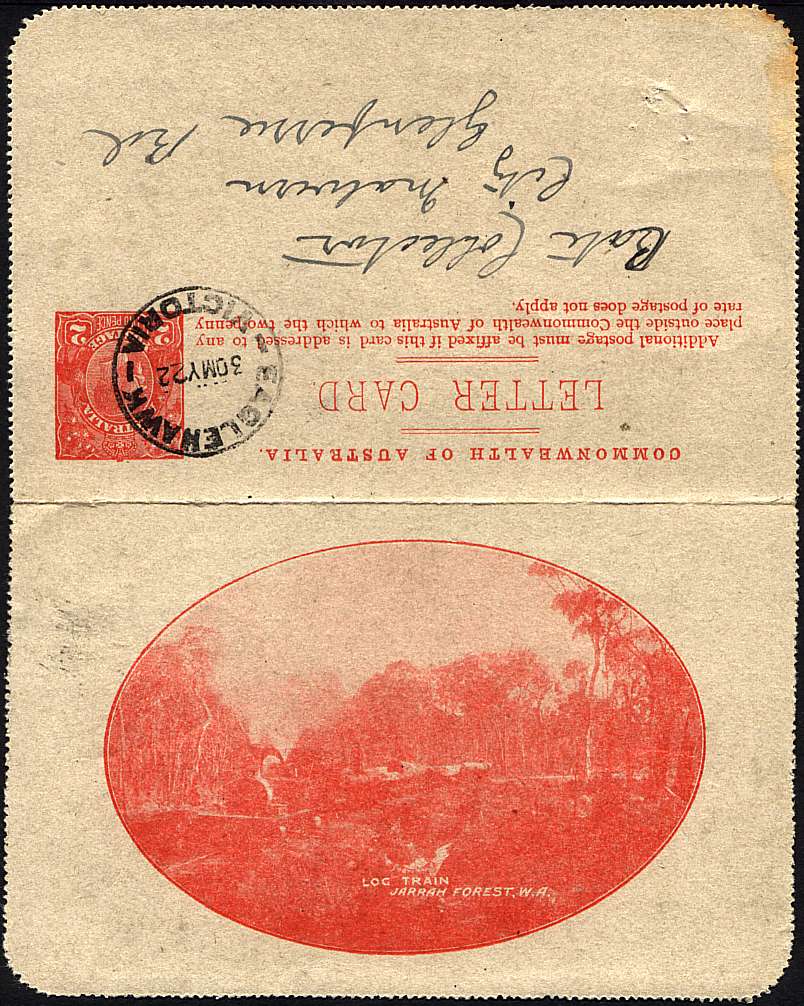 COMMONWEALTH OF AUSTRALIA.
LETTER CARD.
Additional postage must be affixed if this card is addressed to any
place outside the Commonwealth of Australia to which the two penny
rate of postage does not apply.
AUSTRALIA
2 2
EAGLEHAWK
30MY22
VICTORIA
Rate Collector
City Malvern
Glenferrie Rd
LOG TRAIN
JARRAH FOREST, W.A.